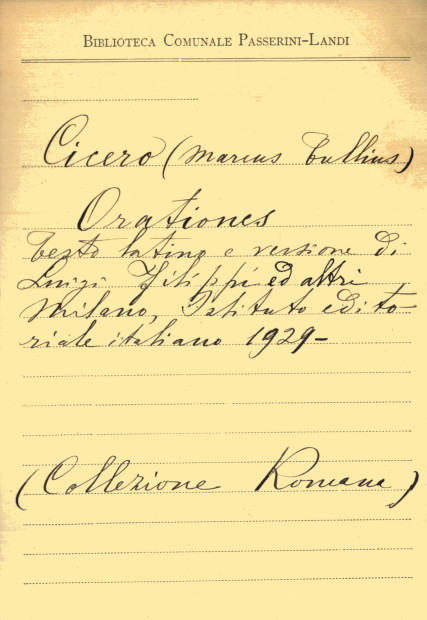 BIBLIOTECA COMUNALE PASSERINI-LANDI
Cicero (Marcus Tullius)
Orationes
Testo latino e versione di
Luigi Filippi ed altri
Milano, Istituto edito
riale italiano 1929-
(Collezione Romana)